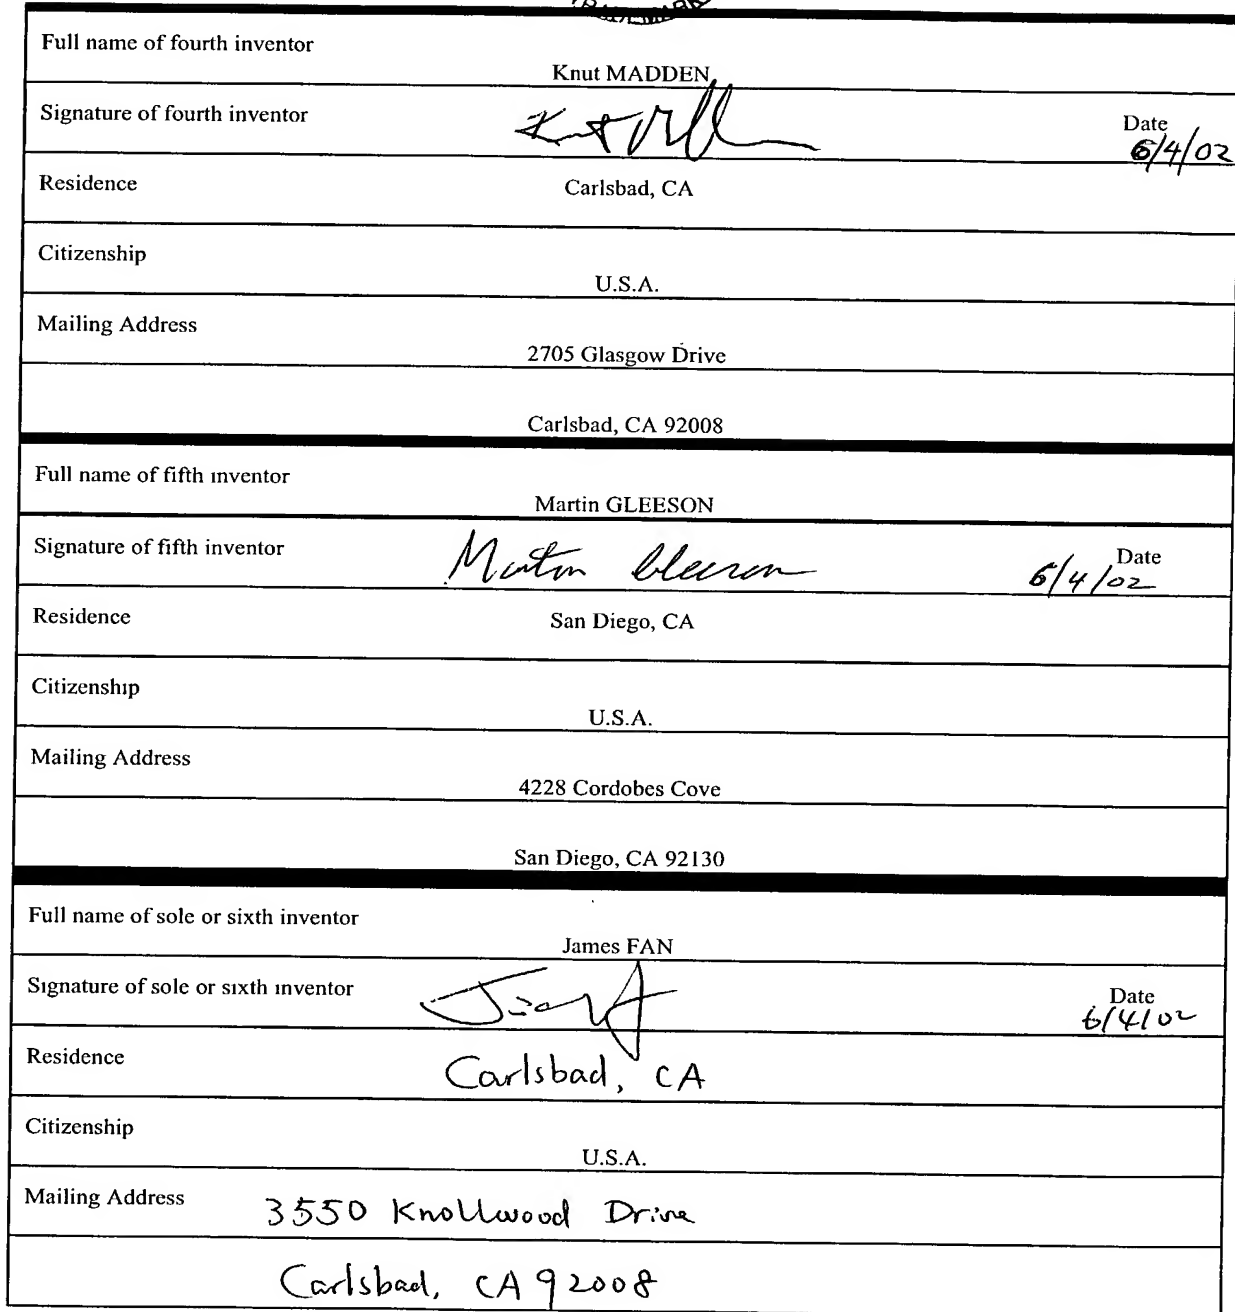 TRADEMARK
Full name of fourth inventor
Knut MADDEN
Signature of fourth inventor
Date
6/4/02
Residence
Carlsbad, CA
Citizenship
U.S.A.
Mailing Address
2705 Glasgow Drive
Carlsbad, CA 92008
Full name of fifth inventor
Martin GLEESON
Signature of fifth inventor
Martin Gleeson
Date
6/4/02
Residence
San Diego, CA
Citizenship
U.S.A.
Mailing Address
4228 Cordobes Cove
San Diego, CA 92130
Full name of sole or sixth inventor
James FAN
Signature of sole or sixth inventor
Date
6/4/02
Residence
Carlsbad, CA
Citizenship
U.S.A.
Mailing Address
3550 Knollwood Drive
Carlsbad, CA 92008